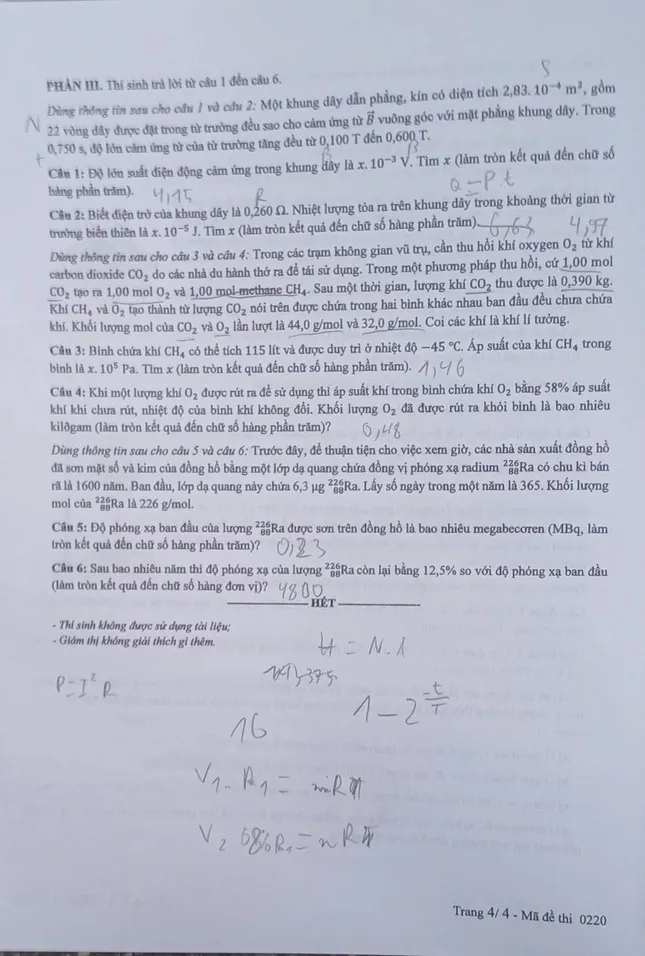 PHẦN III. Thí sinh trả lời từ câu 1 đến câu 6.
S
Dùng thông tin sau cho câu 1 và câu 2: Một khung dây dẫn phẳng, kín có diện tích 2,83. 10⁻⁴ m², gồm
N
22 vòng dây được đặt trong từ trường đều sao cho cảm ứng từ B⃗ vuông góc với mặt phẳng khung dây. Trong
t
0,750 s, độ lớn cảm ứng từ của từ trường tăng đều từ 0,100 T đến 0,600 T.
B B
Câu 1: Độ lớn suất điện động cảm ứng trong khung dây là x. 10⁻³ V. Tìm x (làm tròn kết quả đến chữ số
hàng phần trăm). 4,15 R Q = P t
Câu 2: Biết điện trở của khung dây là 0,260 Ω. Nhiệt lượng tỏa ra trên khung dây trong khoảng thời gian từ
trường biến thiên là x. 10⁻⁵ J. Tìm x (làm tròn kết quả đến chữ số hàng phần trăm). 6,63 4,97
Dùng thông tin sau cho câu 3 và câu 4: Trong các trạm không gian vũ trụ, cần thu hồi khí oxygen O₂ từ khí
carbon dioxide CO₂ do các nhà du hành thở ra để tái sử dụng. Trong một phương pháp thu hồi, cứ 1,00 mol
CO₂ tạo ra 1,00 mol O₂ và 1,00 mol methane CH₄. Sau một thời gian, lượng khí CO₂ thu được là 0,390 kg.
Khí CH₄ và O₂ tạo thành từ lượng CO₂ nói trên được chứa trong hai bình khác nhau ban đầu đều chưa chứa
khí. Khối lượng mol của CO₂ và O₂ lần lượt là 44,0 g/mol và 32,0 g/mol. Coi các khí là khí lí tưởng.
Câu 3: Bình chứa khí CH₄ có thể tích 115 lít và được duy trì ở nhiệt độ −45 °C. Áp suất của khí CH₄ trong
bình là x. 10⁵ Pa. Tìm x (làm tròn kết quả đến chữ số hàng phần trăm). 1,46
Câu 4: Khi một lượng khí O₂ được rút ra để sử dụng thì áp suất khí trong bình chứa khí O₂ bằng 58% áp suất
khí khi chưa rút, nhiệt độ của bình khí không đổi. Khối lượng O₂ đã được rút ra khỏi bình là bao nhiêu
kilôgam (làm tròn kết quả đến chữ số hàng phần trăm)? 0,48
Dùng thông tin sau cho câu 5 và câu 6: Trước đây, để thuận tiện cho việc xem giờ, các nhà sản xuất đồng hồ
đã sơn mặt số và kim của đồng hồ bằng một lớp dạ quang chứa đồng vị phóng xạ radium ²²⁶₈₈Ra có chu kì bán
rã là 1600 năm. Ban đầu, lớp dạ quang này chứa 6,3 μg ²²⁶₈₈Ra. Lấy số ngày trong một năm là 365. Khối lượng
mol của ²²⁶₈₈Ra là 226 g/mol.
Câu 5: Độ phóng xạ ban đầu của lượng ²²⁶₈₈Ra được sơn trên đồng hồ là bao nhiêu megabecơren (MBq, làm
tròn kết quả đến chữ số hàng phần trăm)? 0,23
Câu 6: Sau bao nhiêu năm thì độ phóng xạ của lượng ²²⁶₈₈Ra còn lại bằng 12,5% so với độ phóng xạ ban đầu
(làm tròn kết quả đến chữ số hàng đơn vị)? 4800
HẾT
- Thí sinh không được sử dụng tài liệu;
- Giám thị không giải thích gì thêm.
H = N.λ
P = I².R
1 − 2^(-t/T)
16
Trang 4/ 4 - Mã đề thi 0220